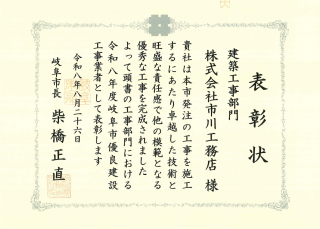 表彰状
建築工事部門
株式会社市川工務店 様
貴社は本市発注の工事を施工
するにあたり卓越した技術と
旺盛な責任感で他の模範となる
優秀な工事を完成されました
よって頭書の工事部門における
令和八年度岐阜市優良建設
工事業者として表彰します
令和八年八月二十六日
岐阜市長 柴橋正直